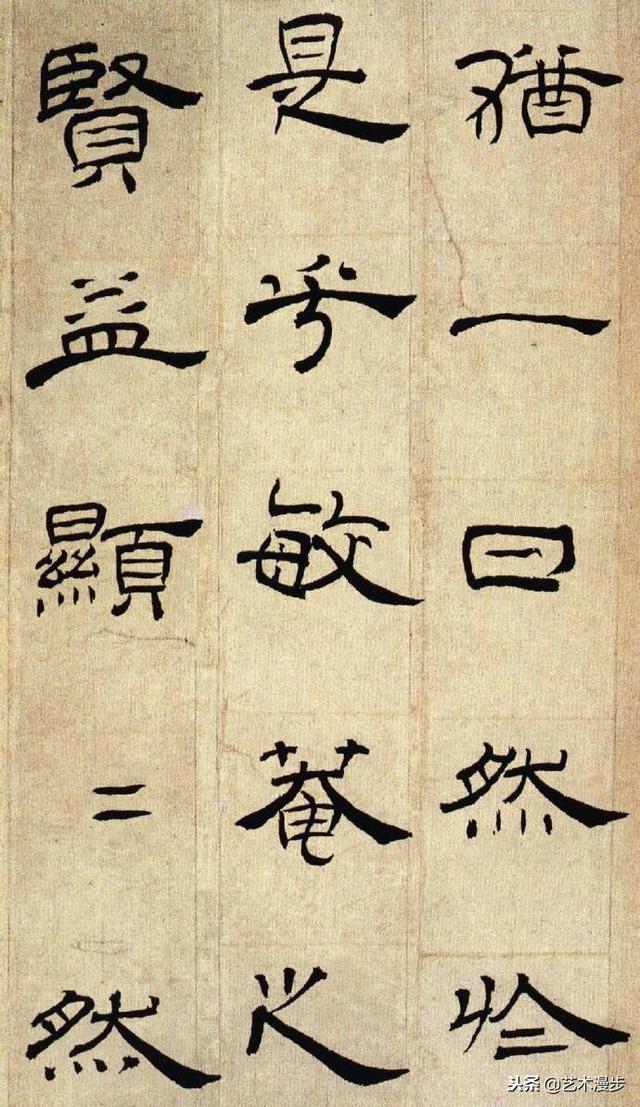 猶一日然於
是乎敏菴之
賢益顯二然
头条 @艺术漫步